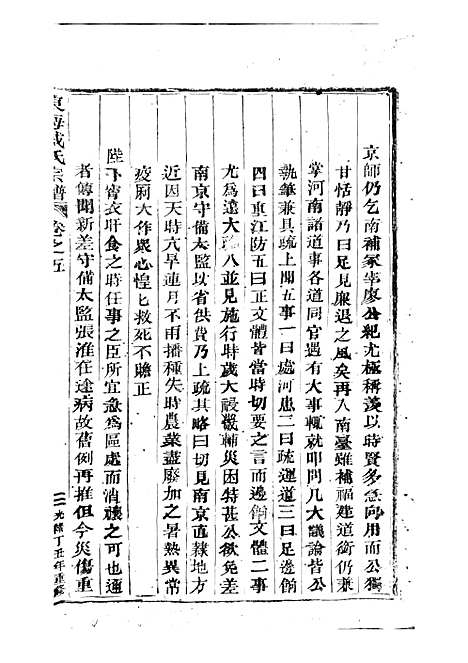 京師仍乞南補冢宰廖公紀尤極稱羨以時賢多急向用而公獨
甘恬靜乃曰足見廉退之風矣再入南臺雖補福建道銜仍兼
掌河南諸道事各道同官遇有大事輒就叩問凡大議論皆公
執筆兼具疏上聞五事一曰處河患二曰疏運道三曰足邊餉
四曰重江防五曰正文體皆當時切要之言而邊餉文體二事
尤為遠大 并見施行時歲大祲畿輔災困特甚公欲免差
南京守備太監以省供費乃上疏其略曰切見南京直隸地方
近因天時亢旱連月不雨播種失時農業盡廢加之暑熱異常
疫厲大作眾心惶匕救死不贍正
陛下宵衣旰食之時任事之臣所宜急為區處而消禳之可也適
者傳聞新差守備太監張淮在途病故舊例再推但今災傷重
東海戚氏宗譜 卷之五
光緒丁丑年重修